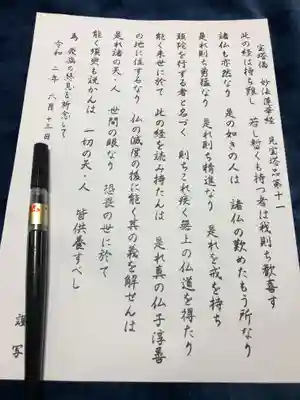 宝塔偈 妙法蓮華経 見宝塔品第十一
此の経は持ち難し 若し暫くも持つ者は我則ち歓喜す
諸仏も亦然なり 是の如きの人は 諸仏の歎めたもう所なり
是れ則ち勇猛なり 是れ則ち精進なり 是れを戒を持ち
頭陀を行する者と名づく 則ちこれ疾く無上の仏道を得たり
能く来世に於て 此の経を読み持たんは 是れ真の仏子淳善
の地に住するなり 仏の滅度の後に能く其の義を解せんは
是れ諸の天・人 世間の眼なり 恐畏の世に於て
能く須臾も説かんは 一切の天・人 皆供養すべし
為 疫病の終息を祈念して
令和 二年 八月十三日
謹写